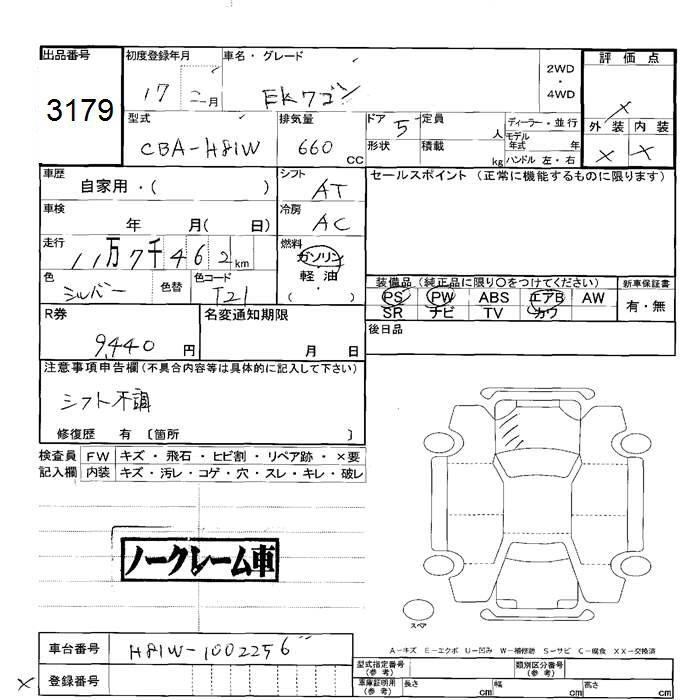 出品番号 初度登録年月 車名・グレード 評価点
3179 17 二月 EKワゴン 2WD・4WD ×
外装 内装
× ×
型式 排気量 ドア 定員 ディーラー・並行
CBA-H81W 660 CC 5 人 モデル年式 年
形状 積載 kg ハンドル 左・右
車歴 シフト セールスポイント (正常に機能するものに限ります)
自家用・( ) AT
車検 冷房
年 月( 日) AC
走行 燃料
11万7千462km ガソリン
軽油
( )
色 色替 色コード 装備品 (純正品に限り〇をつけてください) 新車保証書
シルバー T21 PS PW ABS エアB AW 有・無
SR ナビ TV カワ
R券 名変通知期限 後日品
9,440 円 月 日
注意事項申告欄 (不具合内容等は具体的に記入して下さい)
シフト不調
修復歴 有 〔箇所 〕
検査員 FW キズ・飛石・ヒビ割・リペア跡・×要
記入欄 内装 キズ・汚レ・コゲ・穴・スレ・キレ・破レ
ノークレーム車
スペア
A-キズ E-エクボ U-凹み W-補修跡 S-サビ C-腐食 XX-交換済
車台番号 H81W-1002256
× 登録番号
型式指定番号(参考) 類別区分番号(参考)
車庫証明用(参考) 長さ cm 幅 cm 高さ cm